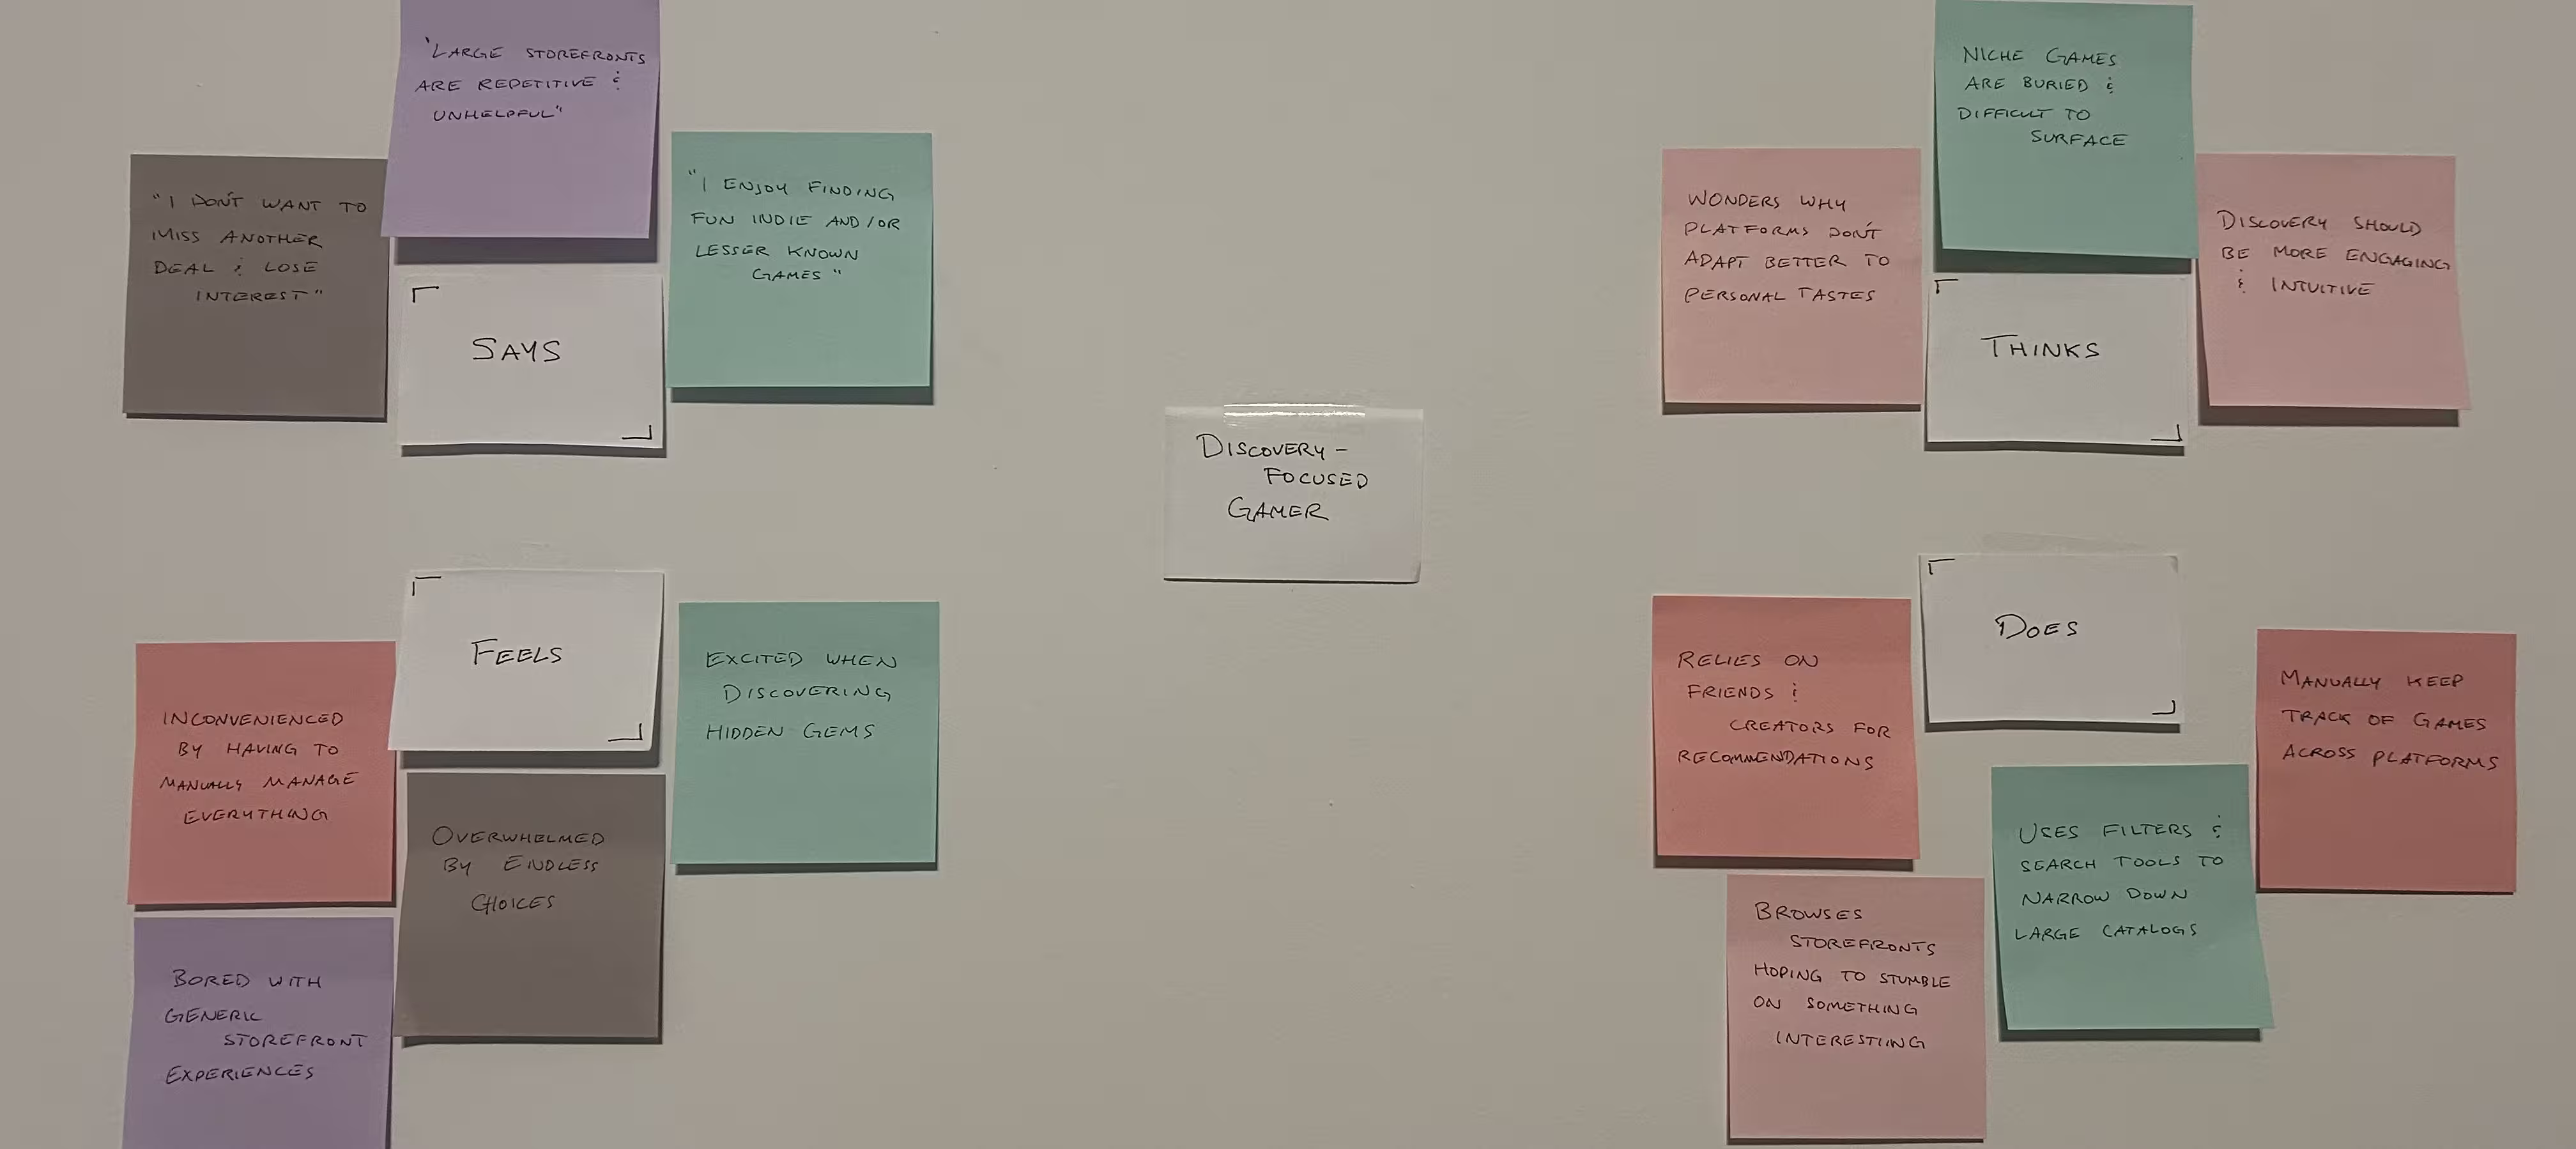 "I DON'T WANT TO
MISS ANOTHER
DEAL & LOSE
INTEREST"
"LARGE STOREFRONTS
ARE REPETITIVE &
UNHELPFUL"
"I ENJOY FINDING
FUN INDIE AND/OR
LESSER KNOWN
GAMES"
SAYS
WONDERS WHY
PLATFORMS DON'T
ADAPT BETTER TO
PERSONAL TASTES
NICHE GAMES
ARE BURIED &
DIFFICULT TO
SURFACE
DISCOVERY SHOULD
BE MORE ENGAGING
& INTUITIVE
THINKS
DISCOVERY-
FOCUSED
GAMER
FEELS
INCONVENIENCED
BY HAVING TO
MANUALLY MANAGE
EVERYTHING
OVERWHELMED
BY ENDLESS
CHOICES
EXCITED WHEN
DISCOVERING
HIDDEN GEMS
BORED WITH
GENERIC
STOREFRONT
EXPERIENCES
DOES
RELIES ON
FRIENDS &
CREATORS FOR
RECOMMENDATIONS
MANUALLY KEEP
TRACK OF GAMES
ACROSS PLATFORMS
USES FILTERS &
SEARCH TOOLS TO
NARROW DOWN
LARGE CATALOGS
BROWSES
STOREFRONTS
HOPING TO STUMBLE
ON SOMETHING
INTERESTIING